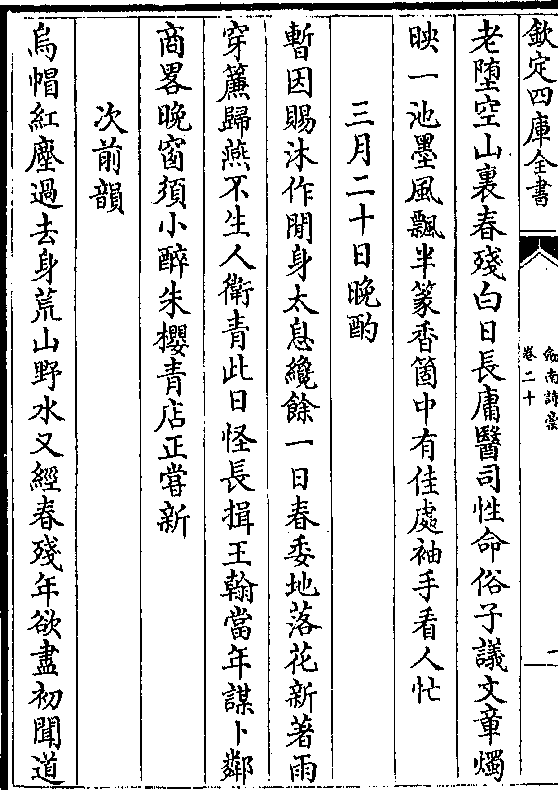 欽定四庫全書
劍南詩藁
卷二十
一
老墮空山裏春殘白日長庸醫司性命俗子議文章燭
映一池墨風飄半篆香箇中有佳處袖手看人忙
三月二十日晚酌
暫因賜沐作閒身太息纔餘一日春委地落花新著雨
穿簾歸燕不生人衛青此日怪長揖王翰當年謀卜鄰
商畧晚窗須小醉朱櫻青店正嘗新
次前韻
烏帽紅塵過去身荒山野水又經春殘年欲盡初聞道